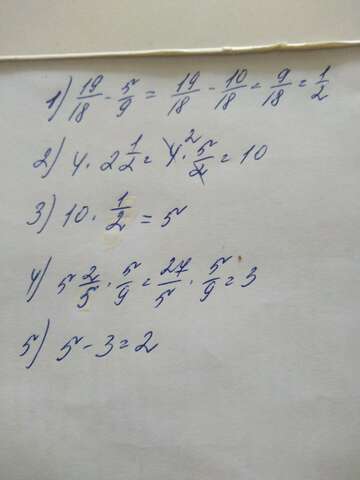 1) 19/18 - 5/9 = 19/18 - 10/18 = 9/18 = 1/2
2) 4 · 2 1/2 = 4² · 5/2 = 10
3) 10 · 1/2 = 5
4) 5 2/5 · 5/9 = 27/5 · 5/9 = 3
5) 5 - 3 = 2